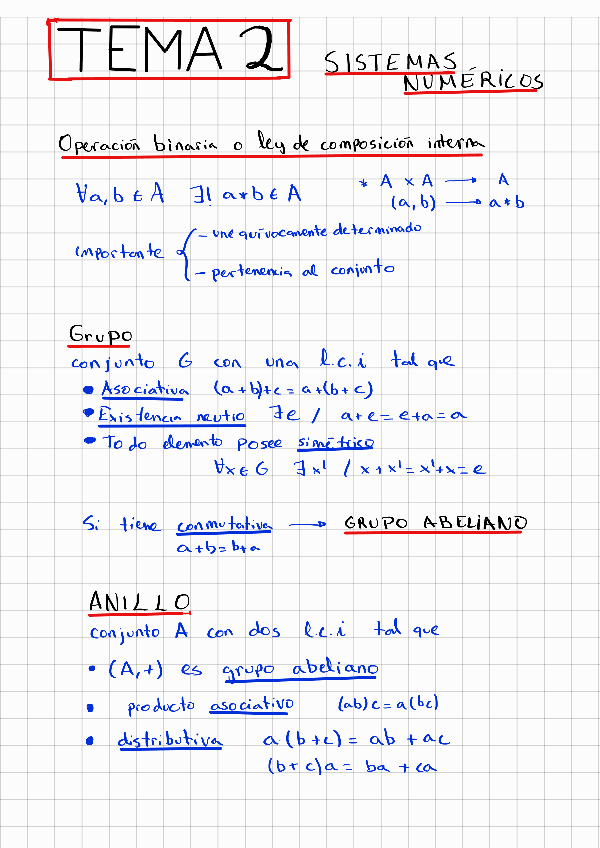 TEMA 2
SISTEMAS
NUMÉRICOS
Operación binaria o ley de composición interna
∀a,b ∈ A   ∃! a*b ∈ A
* A × A → A
(a,b) → a*b
importante { - unequívocamente determinado
- pertenencia al conjunto
Grupo
conjunto G con una l.c.i tal que
• Asociativa (a+b)+c = a+(b+c)
• Existencia neutro ∃e / a+e = e+a = a
• Todo elemento posee simétrico
∀x ∈ G   ∃ x' / x+x' = x'+x = e
Si tiene conmutativa → GRUPO ABELIANO
a+b = b+a
ANILLO
conjunto A con dos l.c.i tal que
• (A,+) es grupo abeliano
• producto asociativo (ab)c = a(bc)
• distributiva a(b+c) = ab + ac
(b+c)a = ba + ca